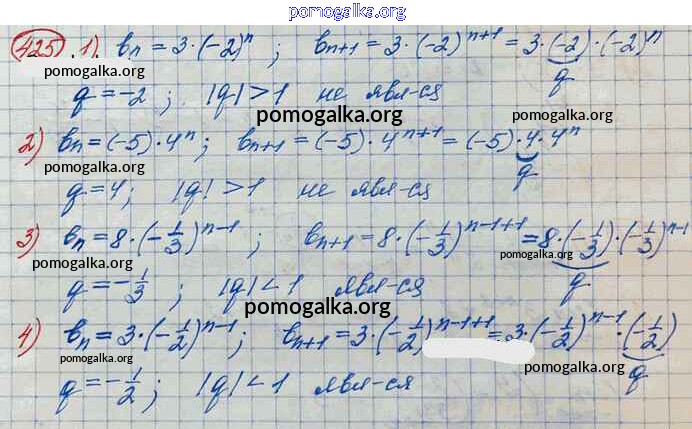 pomogalka.org
425. 1). bn = 3·(-2)^n ; bn+1 = 3·(-2)^n+1 = 3·(-2)·(-2)^n
pomogalka.org q
q = -2 ; |q| > 1 не явл-ся
pomogalka.org
2) bn = (-5)·4^n; bn+1 = (-5)·4^n+1 = (-5)·4·4^n
pomogalka.org q
q = 4; |q| > 1 не явл-ся
3) bn = 8·(-1/3)^n-1 ; bn+1 = 8·(-1/3)^n-1+1 = 8·(-1/3)·(-1/3)^n-1
pomogalka.org pomogalka.org
q = -1/3 ; |q| < 1 явл-ся q
pomogalka.org
4) bn = 3·(-1/2)^n-1; bn+1 = 3·(-1/2)^n-1+1 = 3·(-1/2)^n-1·(-1/2)
pomogalka.org pomogalka.org q
q = -1/2; |q| < 1 явл-ся